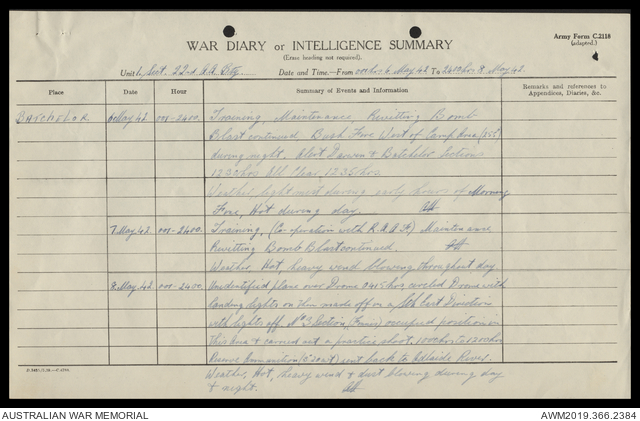 Army Form C.2118
(adapted.)
WAR DIARY or INTELLIGENCE SUMMARY
(Erase heading not required).
Unit Sect. 22nd A.A. Bty. Date and Time.—From 001 hrs 6 May 42 To 2400 hrs 8 May 42.
Place Date Hour Summary of Events and Information Remarks and references to Appendices, Diaries, &c.
BATCHELOR 6 May 42 001-2400. Training, Maintenance, Rivitting Bomb
Blast continued Bush Fire West of Camp Area
during night. Alert Darwin & Batchelor Sections
1230 hrs All Clear 1235 hrs.
Weather, light mist during early hours of Morning
Fine, Hot during day.
7 May 42 001-2400. Training, (Co-operation with R.A.A.F.) Maintenance
Rivitting Bomb Blast continued.
Weather, Hot, heavy wind blowing throughout day.
8 May 42 001-2400. Unidentified plane over Drome 0415 hrs circled Drome with
landing lights on then made off on a Sth East Direction
with lights off. No 3 Section, occupied position in
this Area & carried out a practice shoot, 1000 hrs to 1200 hrs
Reserve Ammunition sent back to Adelaide River.
Weather, Hot, heavy wind & dust blowing during day
& night.
AUSTRALIAN WAR MEMORIAL AWM2019.366.2384